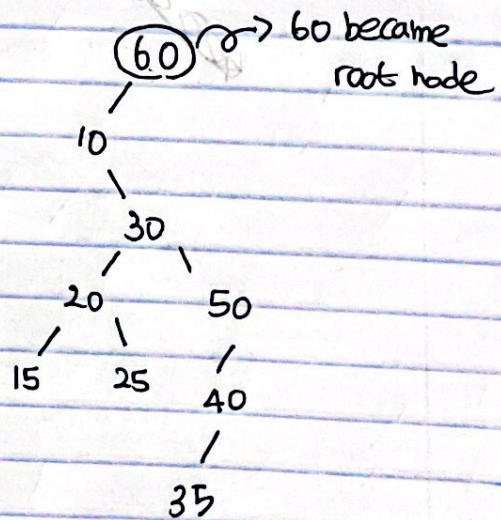 60 60 became
root node
10
30
20 50
15 25 40
35